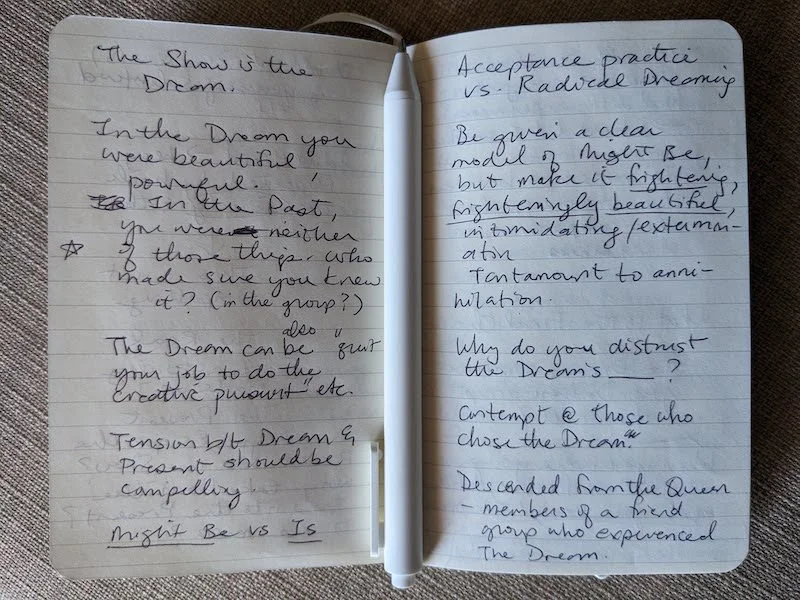 The Show is the
Dream.
In the Dream you
were beautiful,
powerful.
In the Past,
you were neither
of those things. Who
made sure you knew
it? (in the group?)
also
The Dream can be "quit
your job to do the
creative pursuit" etc.
Tension b/t Dream &
Present should be
compelling
Might Be vs Is
Acceptance practice
vs. Radical Dreaming
Be given a clear
model of Might Be,
but make it frightening,
frighteningly beautiful,
intimidating/extermin-
ation
Tantamount to anni-
hilation.
Why do you distrust
the Dream's ___ ?
Contempt @ those who
chose the Dream.
Descended from the Queen
- members of a friend
group who experienced
The Dream.